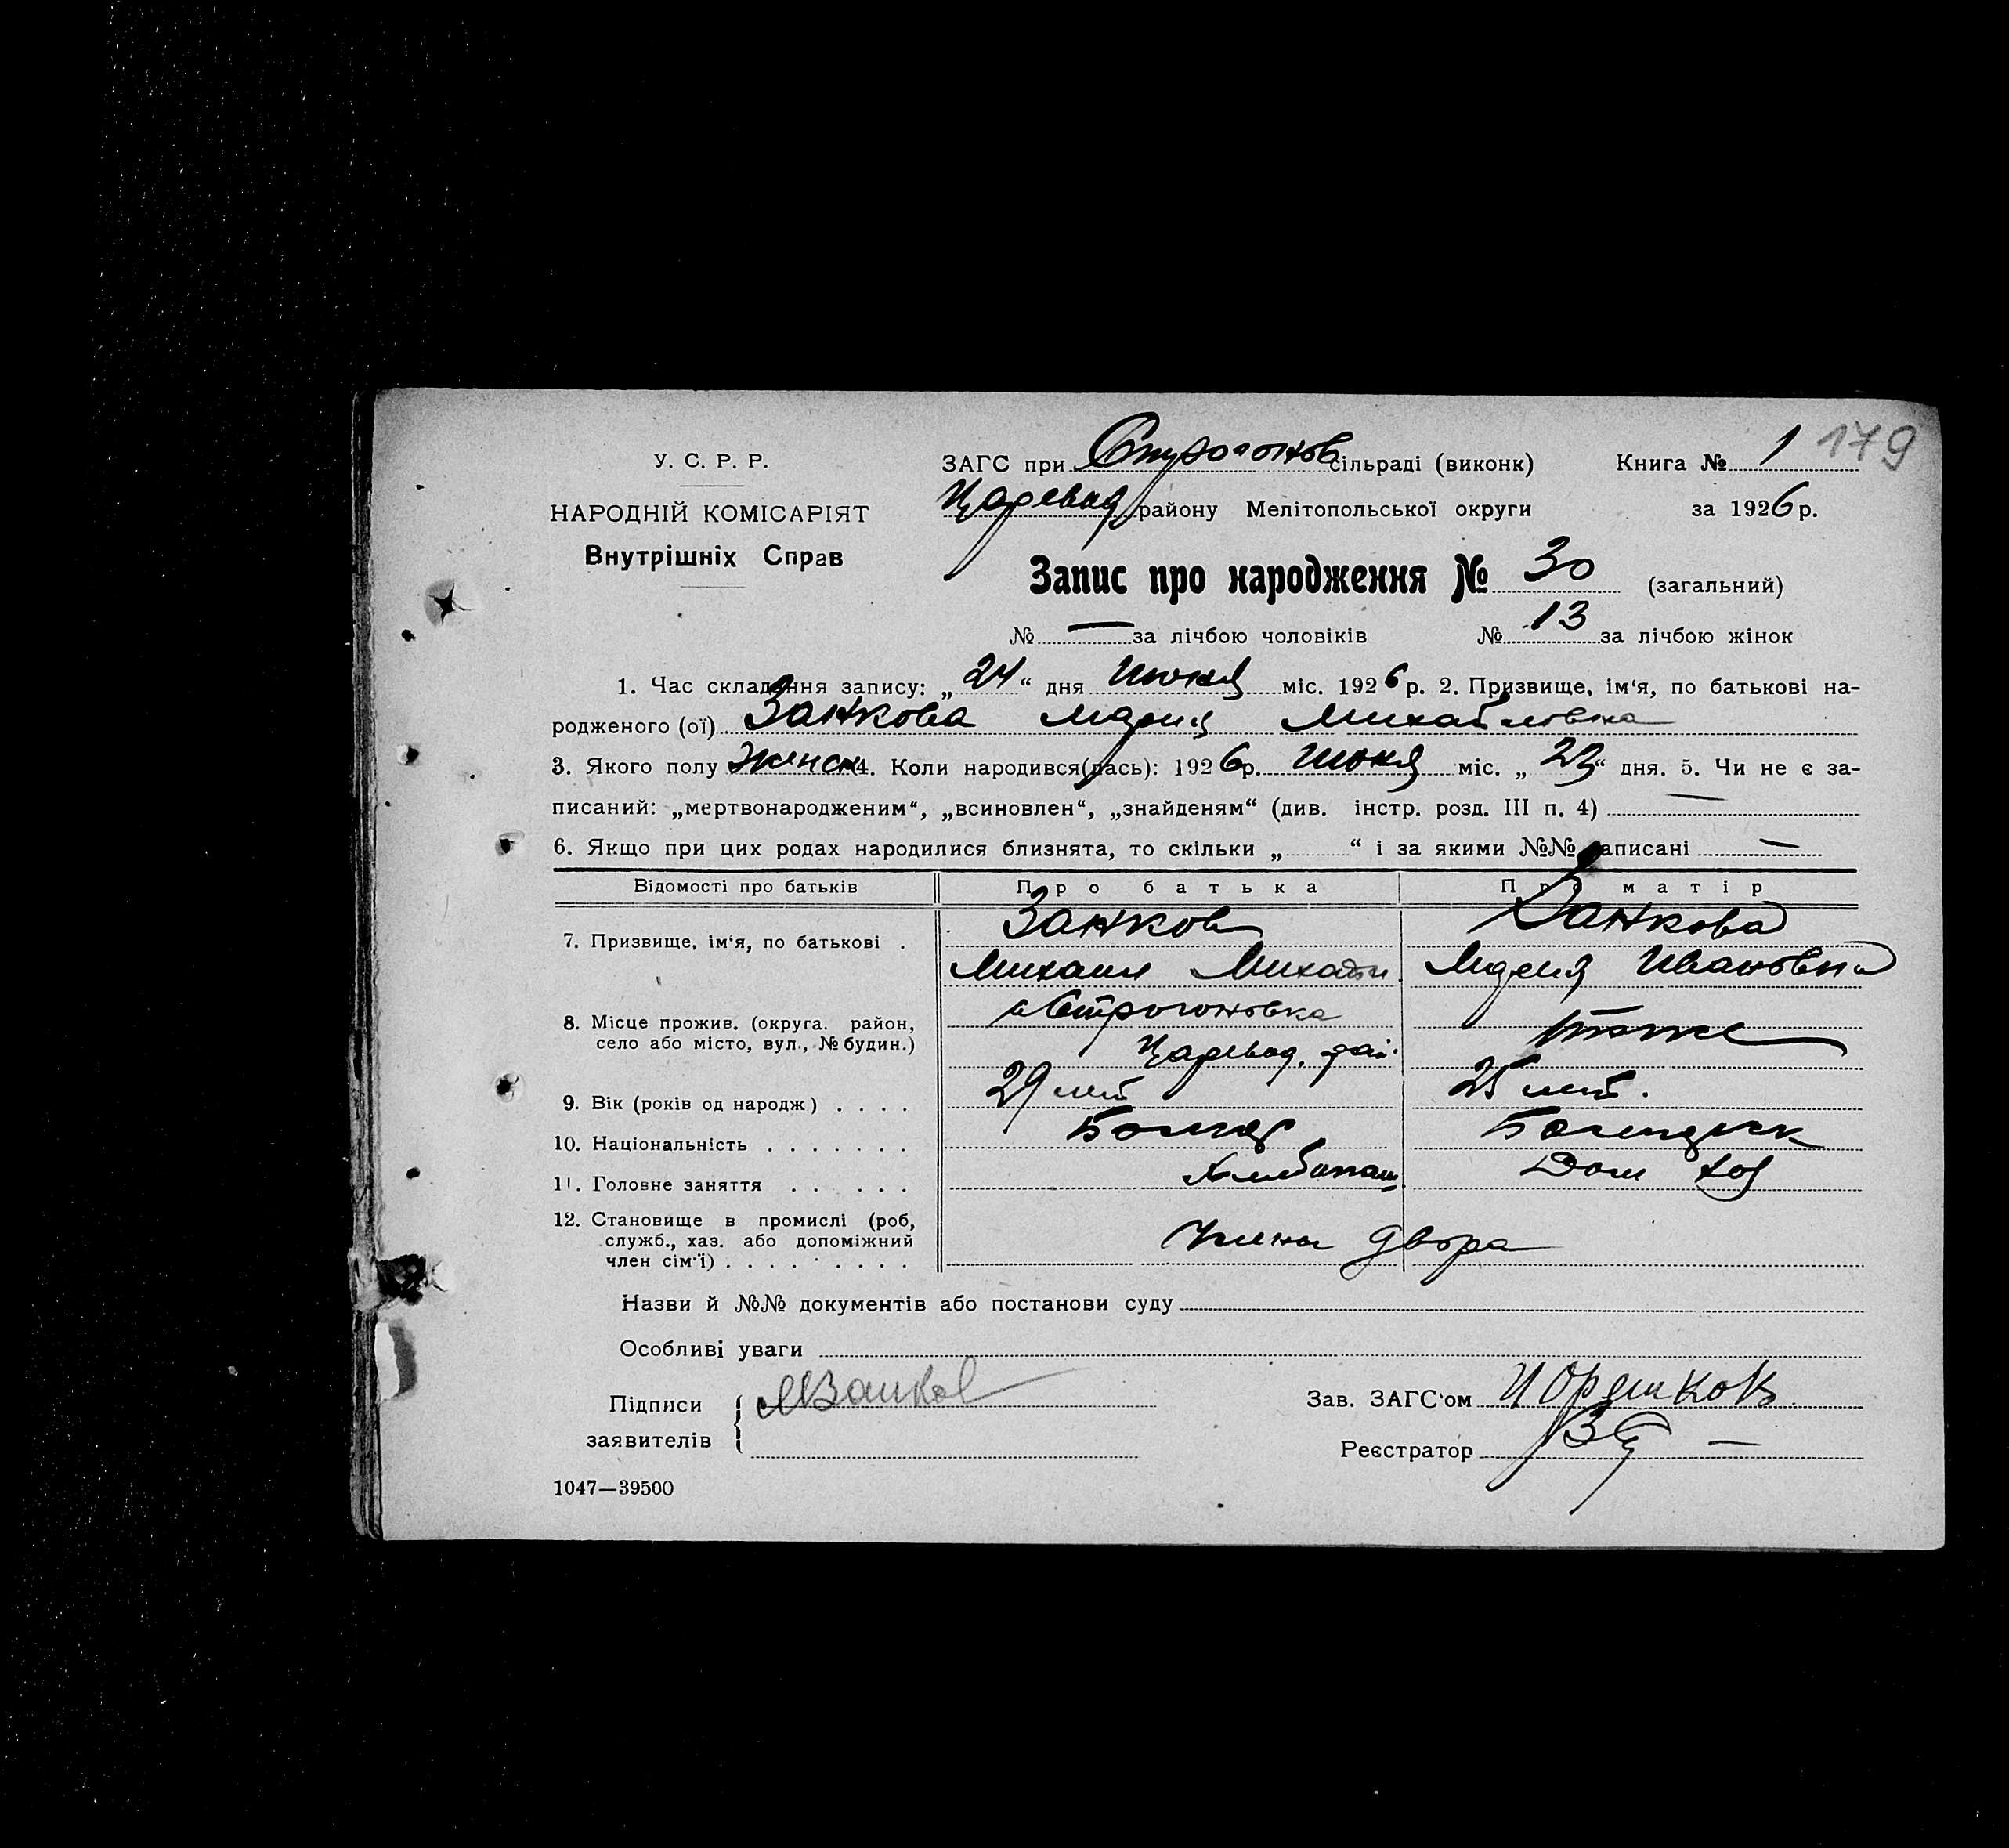 179
У. С. Р. Р.
НАРОДНІЙ КОМІСАРІЯТ
Внутрішніх Справ
ЗАГС при Строгонов сільраді (виконк) Книга № 1
Царевод району Мелітопольської округи за 1926 р.
Запис про народження № 30 (загальний)
№ — за лічбою чоловіків № 13 за лічбою жінок
1. Час складання запису: „24“ дня Июня міс. 1926 р. 2. Призвище, ім‘я, по батькові на-
родженого (ої) Занкова Мария Михайловна
3. Якого полу женск 4. Коли народився(лась): 1926р. Июня міс. „23“ дня. 5. Чи не є за-
писаний: „мертвонародженим“, „всиновлен“, „знайденям“ (див. інстр. розд. III п. 4) —
6. Якщо при цих родах народилися близнята, то скільки „ “ і за якими №№ записані —
Відомості про батьків Про батька Про матір
7. Призвище, ім‘я, по батькові . Занков Занкова
Михаил Михайл. Мария Ивановна
8. Місце прожив. (округа. район, село або місто, вул., № будин.) с Строгоновка тоже
Царевод. рай.
9. Вік (років од народж) . . . . 29 лет 25 лет.
10. Національність . . . . . . . Болгар Болгарк
11. Головне заняття . . . . . Хлебопаш. Дом хоз
12. Становище в промислі (роб, служб., хаз. або допоміжний член сім‘ї) . . . . . . . . . Члены двора
Назви й №№ документів або постанови суду
Особливі уваги
Підписи заявителів { МЗанков Зав. ЗАГС‘ом
Реєстратор —
1047—39500